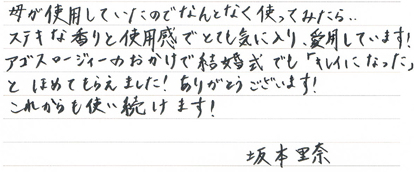 母が使用していたのでなんとなく使ってみたら..
ステキな香りと使用感でとても気に入り、愛用しています!
アゴスロージィーのおかげで結婚式でも「キレイになった」
とほめてもらえました!ありがとうございます!
これからも使い続けます!
坂本里奈